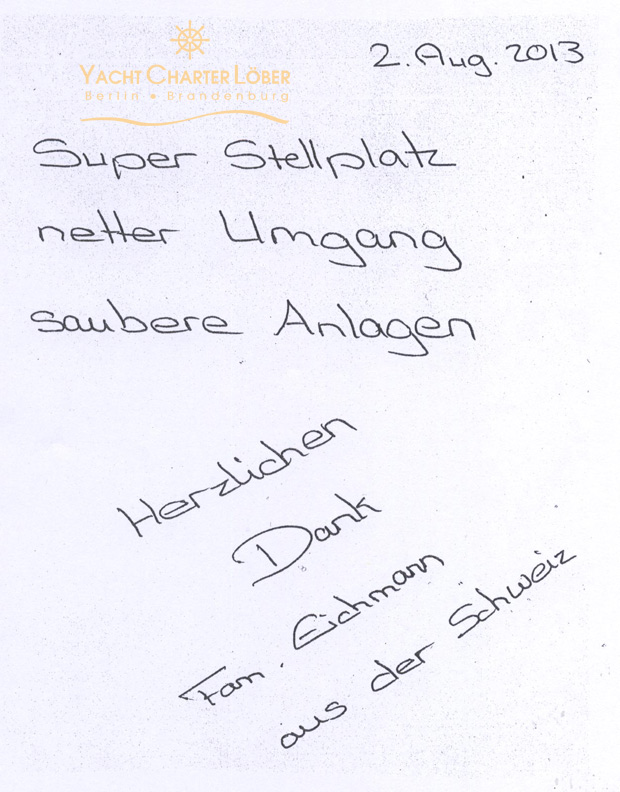 YACHT CHARTER LÖBER
Berlin • Brandenburg
2. Aug. 2013
Super Stellplatz
netter Umgang
saubere Anlagen
Herzlichen
Dank
Fam. Eichmann
aus der Schweiz